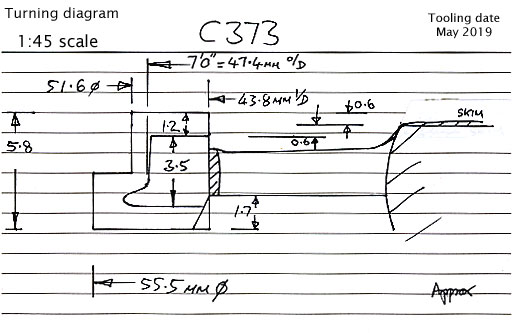 Turning diagram
1:45 scale
C373
Tooling date
May 2019
7'0" = 47.4MM O/D
51.6 ϕ
43.8 MM I/D
0.6
SKIM
1.2
0.6
5.8
3.5
1.7
55.5 MM ϕ
Approx